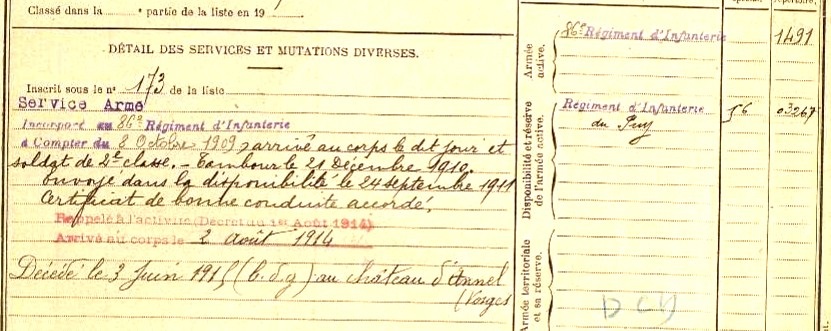 Classé dans la partie de la liste en 19
DÉTAIL DES SERVICES ET MUTATIONS DIVERSES.
Inscrit sous le n° 173 de la liste
Service Armé
Incorporé au 86e Régiment d'Infanterie
à Compter du 8 Octobre 1909, arrivé au corps le dit jour et
soldat de 2e classe. - Tambour le 21 Décembre 1910.
Envoyé dans la disponibilité le 24 septembre 1911
Certificat de bonne conduite accordé.
Rappelé à l'activité (Décret du 1er Août 1914)
Arrivé au corps le 2 août 1914
Décédé le 3 Juin 1915 (b.d.g) au château d'Annel
(Vosges
Armée active.
86e Régiment d'Infanterie
1491
Disponibilité et réserve de l'armée active.
Régiment d'Infanterie
du Puy
56
03267
Armée territoriale et sa réserve.
DCY